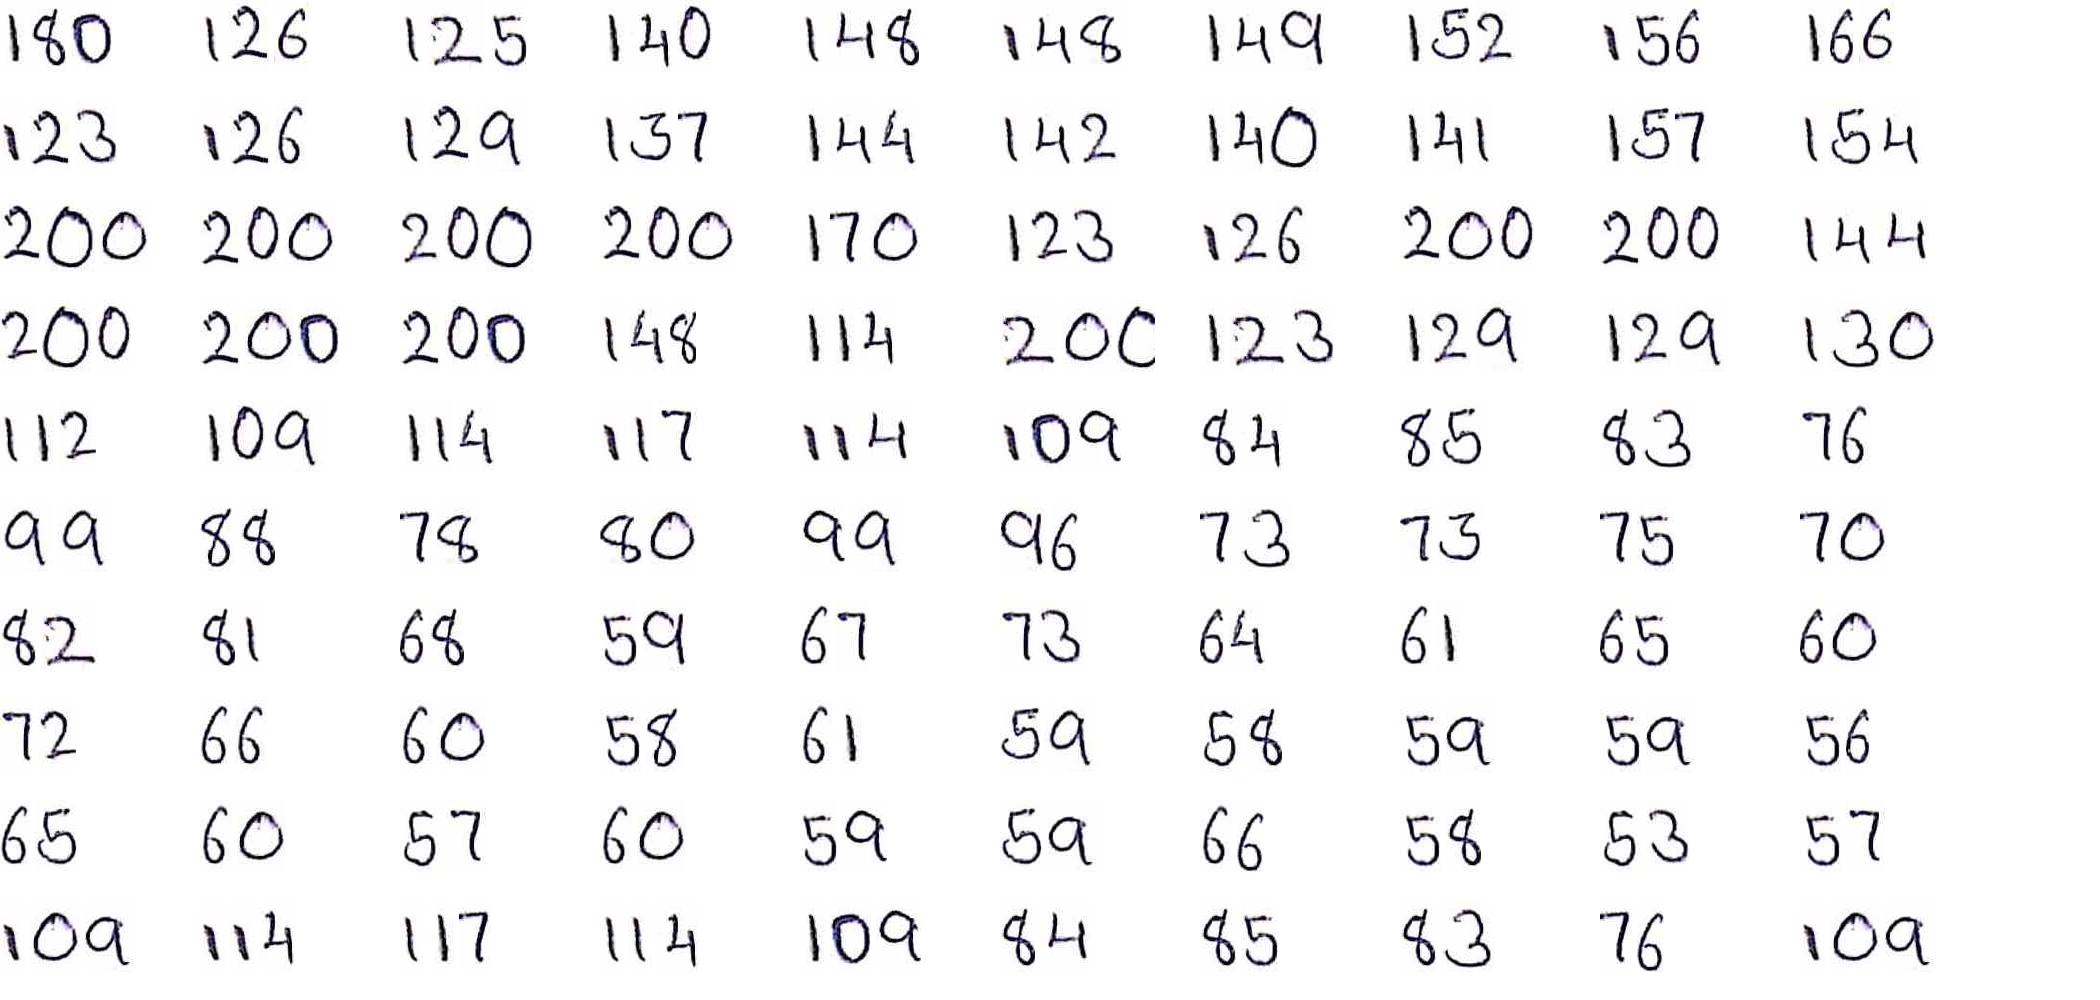 180 126 125 140 148 148 149 152 156 166
123 126 129 137 144 142 140 141 157 154
200 200 200 200 170 123 126 200 200 144
200 200 200 148 114 200 123 129 129 130
112 109 114 117 114 109 84 85 83 76
99 88 78 80 99 96 73 73 75 70
82 81 68 59 67 73 64 61 65 60
72 66 60 58 61 59 58 59 59 56
65 60 57 60 59 59 66 58 53 57
109 114 117 114 109 84 85 83 76 109